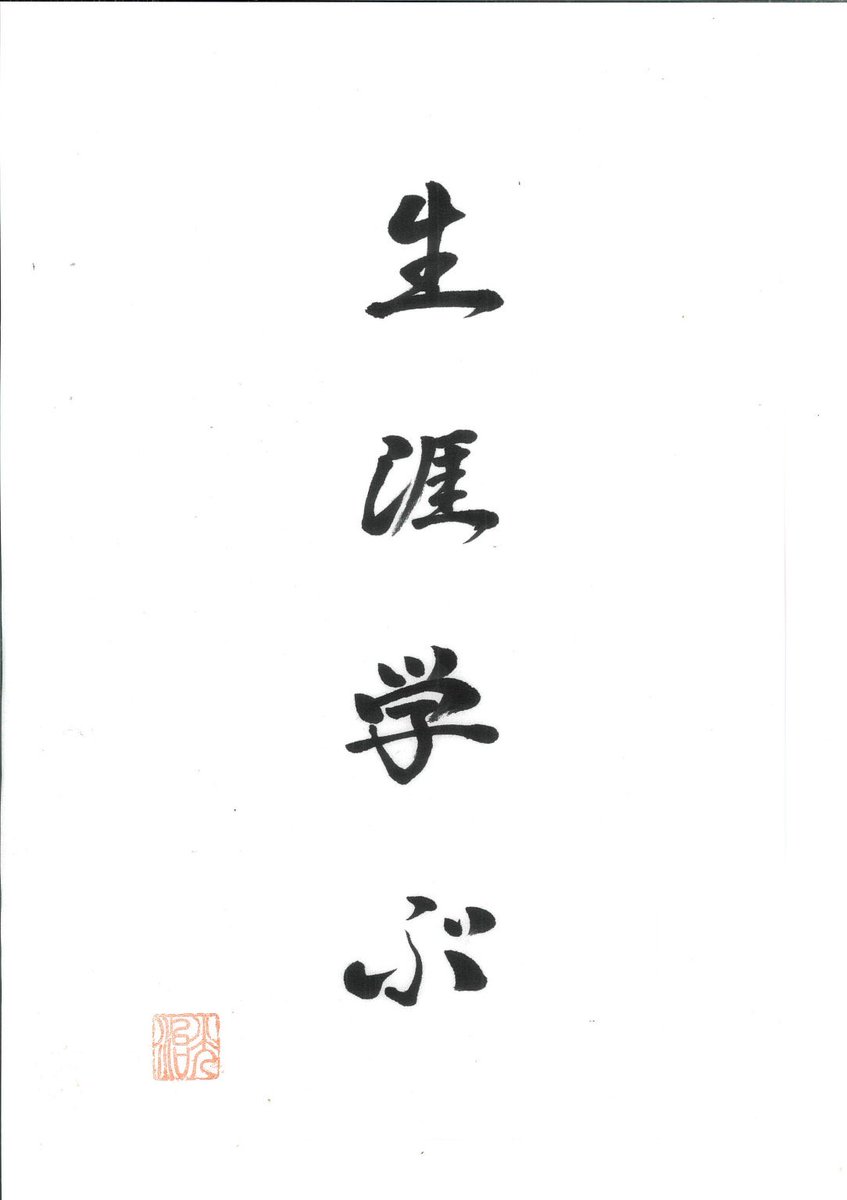 生涯学ぶ